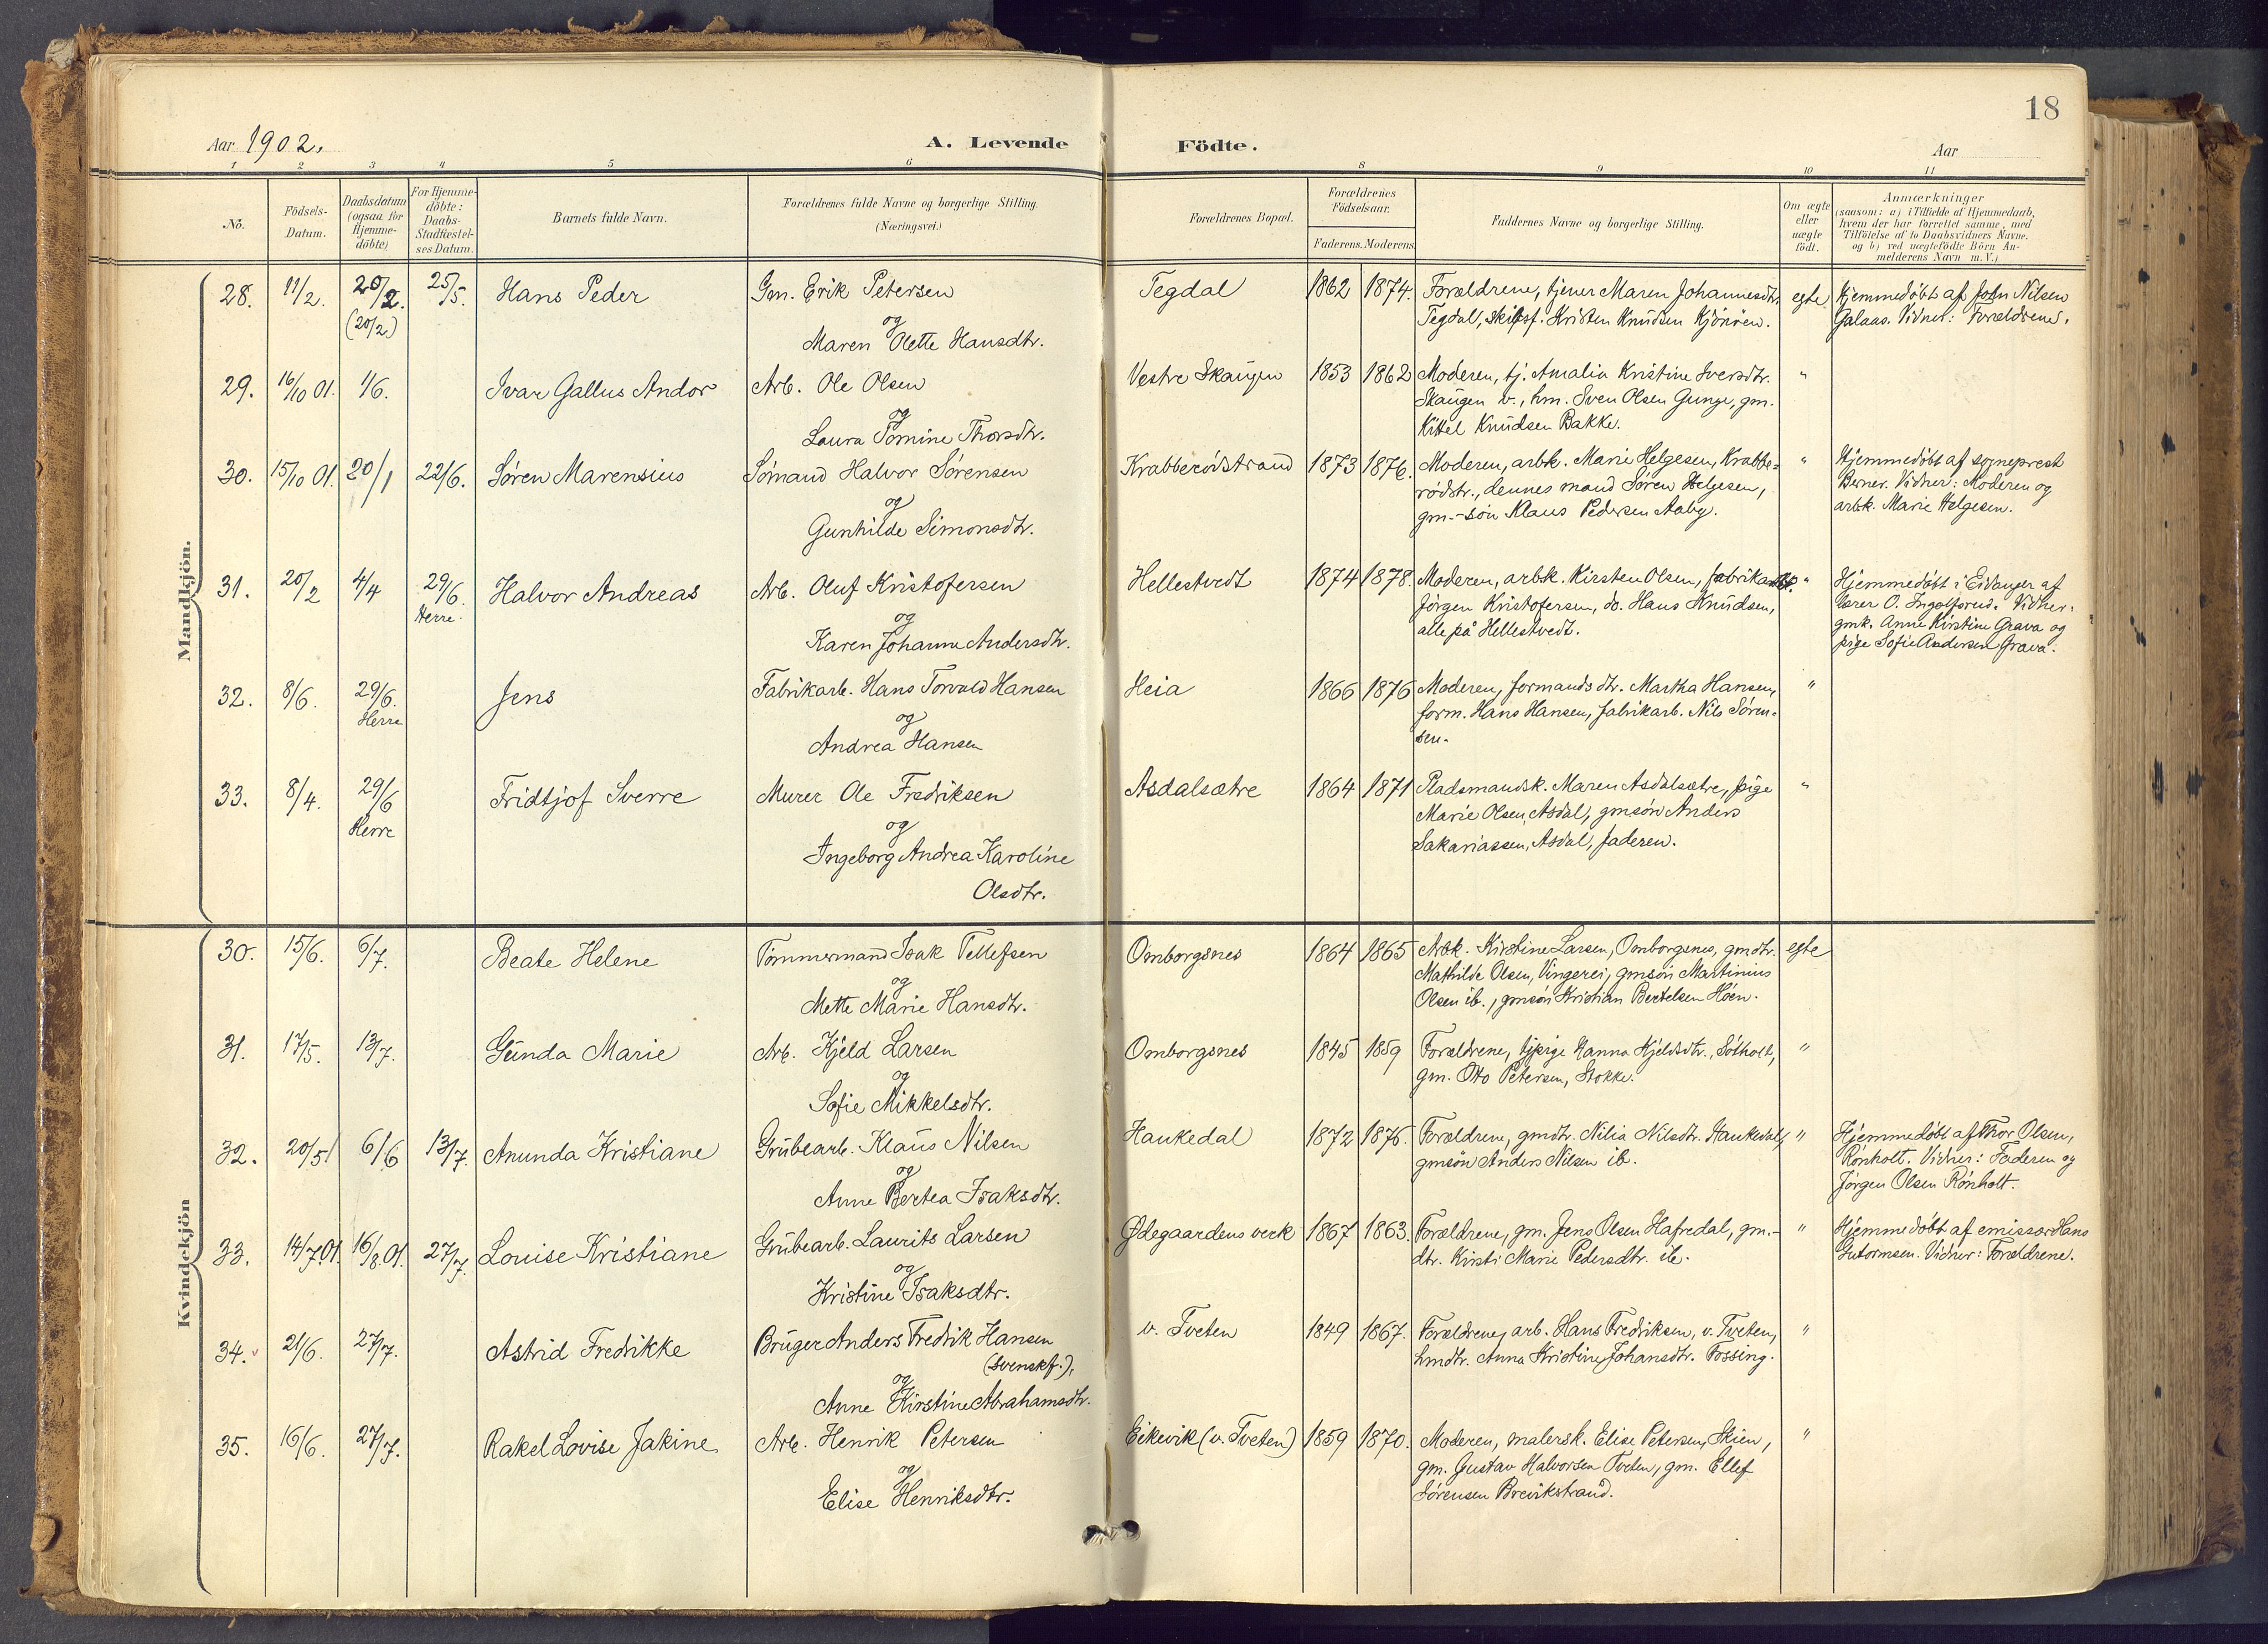 18
Aar 1902. A. Levende Födte. Aar
1 2 3 4 5 6 8 9 10 11
No. Födsels-Datum. Daabsdatum (ogsaa for Hjemme-döbte) For Hjemme-döbte: Daabs-Stadfæstel-ses Datum. Barnets fulde Navn. Forældrenes fulde Navne og borgerlige Stilling. (Næringsvei.) Forældrenes Bopæl. Forældrenes Födselsaar. Faderens. Moderens. Faddernes Navne og borgerlige Stilling. Om ægte eller uægte født. Anmærkninger (saasom: a) i Tilfælde af Hjemmedaab, hvem der har forrettet samme, med Tilföielse af to Daabsvidners Navne, og b) ved uægtefödte Börn An-melderens Navn m. V.)
Mandkjön.
28. 11/2. 20/2. 25/5. Hans Peder Gm. Erik Petersen Tegdal 1862 1874. Forældrene, tjener Maren Johannesdtr. egte Hjemmedøbt af John Nilsen
(20/2) og Tegdal, skibsf. Kristen Knudsen Kjönöen. Galaas. Vidner: Forældrene.
Maren Olette Hansdtr.
29. 16/10 01. 1/6. Ivar Gallus Andor Arb. Ole Olsen Vestre Skaugen 1853 1862 Moderen, tj. Amalia Kristine Iversdtr. "
og Skaugen v., hm. Sven Olsen Gunge, gm.
Laura Tomine Thorsdtr. Kittel Knudsen Bakke.
30. 15/10 01. 20/1 22/6. Søren Marensius Sømand Halvor Sørensen Krabberødstrand 1873 1876. Moderen, arbk. Marie Helgesen, Krabbe- " Hjemmedøbt af sogneprest
og rødstr., dennes mand Søren Helgesen, Berner. Vidner: Moderen og
Gunhilde Simonsdtr. gm.-søn Klaus Pedersen Aaby. arbk. Marie Helgesen.
31. 20/2 4/4 29/6. Halvor Andreas Arb. Oluf Kristofersen Hellestvedt 1874 1878. Moderen, arbk. Kirsten Olsen, fabrikarb. " Hjemmedøbt i Eidanger af
Herre. og Jørgen Kristofersen, do. Hans Knudsen, lærer O. Ingolfsrud. Vidner:
Karen Johanne Andersdtr. alle på Hellestvedt. gmk. Anne Kirstine Grava og
pige Sofie Andersen Grava.
32. 8/6. 29/6. Jens Fabrikarb. Hans Torvald Hansen Heia 1866 1876 Moderen, formandsdtr. Martha Hansen, "
Herre og form. Hans Hansen, fabrikarb. Nils Søren-
Andrea Hansen sen.
33. 8/4. 29/6 Fridtjof Sverre Murer Ole Fredriksen Asdalsætre 1864 1871 Pladsmandsk. Maren Asdalsætre, pige "
Herre og Marie Olsen, Asdal, gmsøn Anders
Ingeborg Andrea Karoline Sakariassen, Asdal, faderen.
Olsdtr.
Kvindekjön
30. 15/6. 6/7. Beate Helene Tømmermand Isak Tellefsen Omborgsnes 1864 1865 Arbk. Kirstine Larsen, Omborgsnes, gmdtr. egte
og Mathilde Olsen, Vingerei, gmsøn Martinius
Mette Marie Hansdtr. Olsen ib., gmsøn Kristian Bertelsen Höen.
31. 17/5. 13/7. Gunda Marie Arb. Kjeld Larsen Omborgsnes 1845 1859 Forældrene, tjpige Hanna Kjeldsdtr., Søtholt, "
og gm. Otto Petersen, Stokke.
Sofie Mikkelsdtr.
32. 20/5 6/6 13/7. Anunda Kristiane Grubearb. Klaus Nilsen Haukedal 1872 1876. Forældrene, gmdtr. Nilia Nilsdtr. Haukedal, " Hjemmedøbt af Thor Olsen,
og gmsøn Anders Nilsen ib. Rønholt. Vidner: Faderen og
Anne Bertea Isaksdtr. Jørgen Olsen Rønholt.
33. 14/7 01. 16/8 01. 27/7. Louise Kristiane Grubearb. Laurits Larsen Ødegaardens verk 1867 1863. Forældrene, gm. Jens Olsen Hafredal, gm.- " Hjemmedøbt af emissør Hans
og dtr. Kirsti Marie Pedersdtr. ib. Gutormsen. Vidner: Forældrene.
Kristine Isaksdtr.
34. 21/6. 27/7. Astrid Fredrikke Bruger Anders Fredrik Hansen v. Tveten 1849 1867. Forældrene, arb. Hans Fredriksen, v. Tveten, "
(svenskf.), hmdtr. Anna Kristine Johansdtr. Fossing.
og
Anne Kirstine Abrahamsdtr.
35. 16/6. 27/7. Rakel Lovise Jakine Arb. Henrik Petersen Eikevik (v. Tveten) 1859 1870. Moderen, malersk. Elise Petersen, Skien, "
og gm. Gustav Halvorsen Tveten, gm. Ellef
Elise Henriksdtr. Sørensen Brevikstrand.